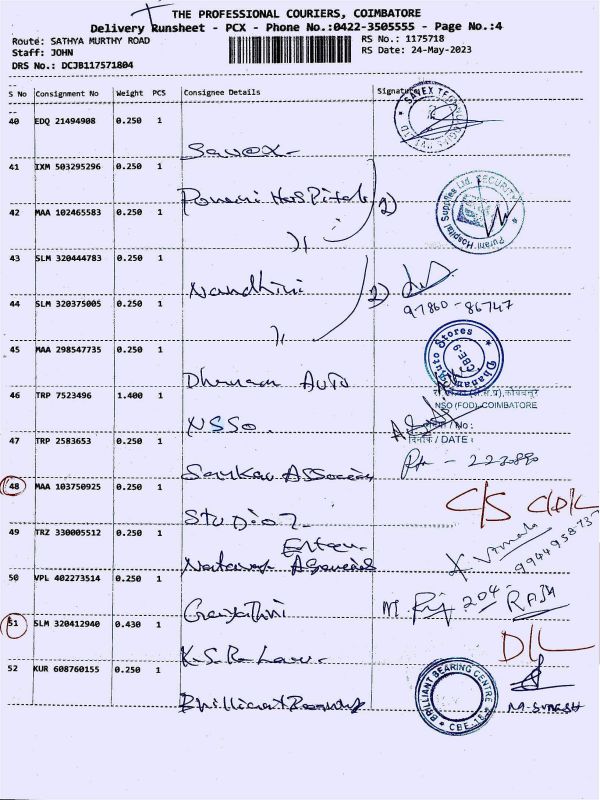 THE PROFESSIONAL COURIERS, COIMBATORE
Delivery Runsheet - PCX - Phone No.:0422-3505555 - Page No.:4
Route: SATHYA MURTHY ROAD
RS No.: 1175718
Staff: JOHN
RS Date: 24-May-2023
DRS No.: DCJB117571804
S No Consignment No Weight PCS Consignee Details Signature
40 EDQ 21494908 0.250 1
Savex
41 IXM 503295296 0.250 1
Purani Hospital
Purani Hospital Supplies Ltd. SECURITY
42 MAA 102465583 0.250 1
43 SLM 320444783 0.250 1
Nandhini
97860-86747
44 SLM 320375005 0.250 1
45 MAA 298547735 0.250 1
Auto Stores
Dhanam Auto
46 TRP 7523496 1.400 1
NSSO (FOD), COIMBATORE
NSSO
47 TRP 2583653 0.250 1
दिनांक / DATE :
Sankar Associates
48 MAA 103750925 0.250 1
C/S
Studio 7
49 TRZ 330005512 0.250 1
Nataraj Agencies
X Vimala
50 VPL 402273514 0.250 1
Gayathri
204 RAJU
51 SLM 320412940 0.430 1
K.S.R. Law
D/L
52 KUR 608760155 0.250 1
BRILLIANT BEARING CENTRE
CBE-18
Brilliant Bearing
M. SURESH